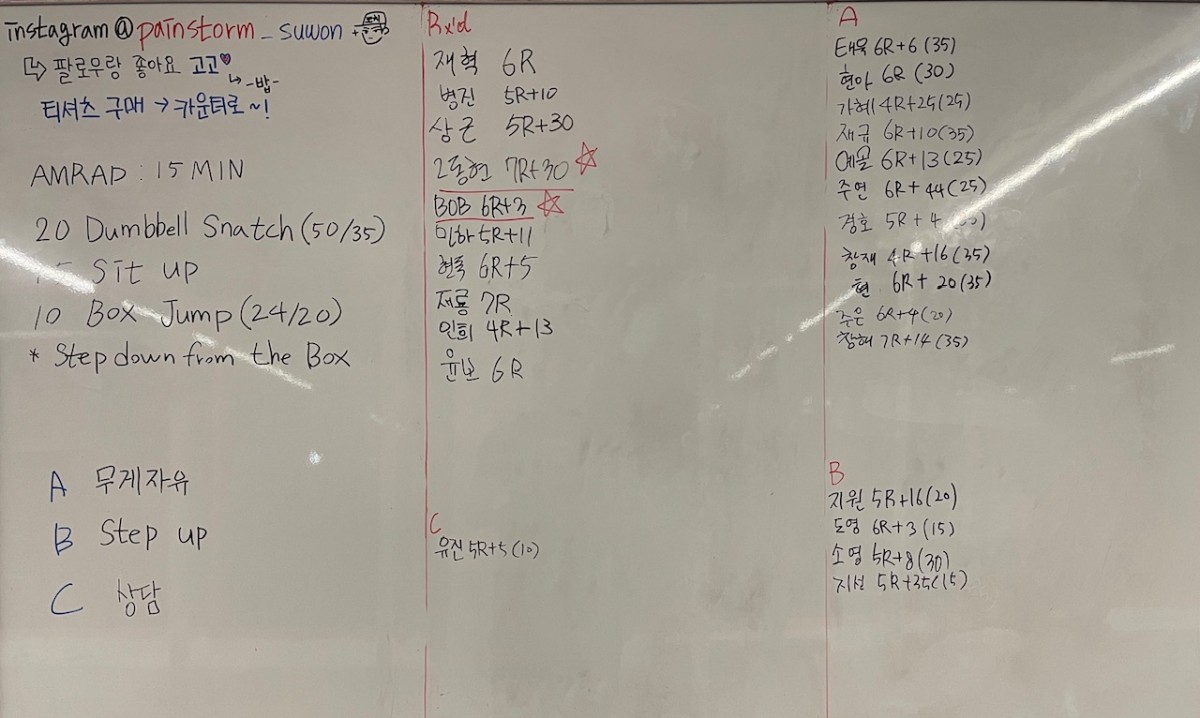 instagram@painstorm_suwon
팔로우랑 좋아요 고고♥
↳ -밥-
티셔츠 구매 → 카운터로 ~!
AMRAP : 15 MIN
20 Dumbbell Snatch (50/35)
15 Sit up
10 Box Jump (24/20)
* Step down from the Box
A 무게자유
B Step up
C 상담
Rx'd
재혁 6R
병진 5R+10
상근 5R+30
동현 7R+30 ☆
BOB 6R+3 ☆
민하 5R+11
6R+5
재룡 7R
인희 4R+13
윤보 6R
C
유진 5R+5 (10)
A
태욱 6R+6 (35)
현아 6R (30)
가혜 4R+25 (25)
재규 6R+10 (35)
예골 6R+13 (25)
주연 6R+44 (25)
경호 5R+4
창재 4R+16 (35)
현 6R+20 (35)
주은 6R+4 (20)
창혜 7R+14 (35)
B
지원 5R+16 (20)
도영 6R+3 (15)
소영 5R+8 (30)
지선 5R+35 (15)